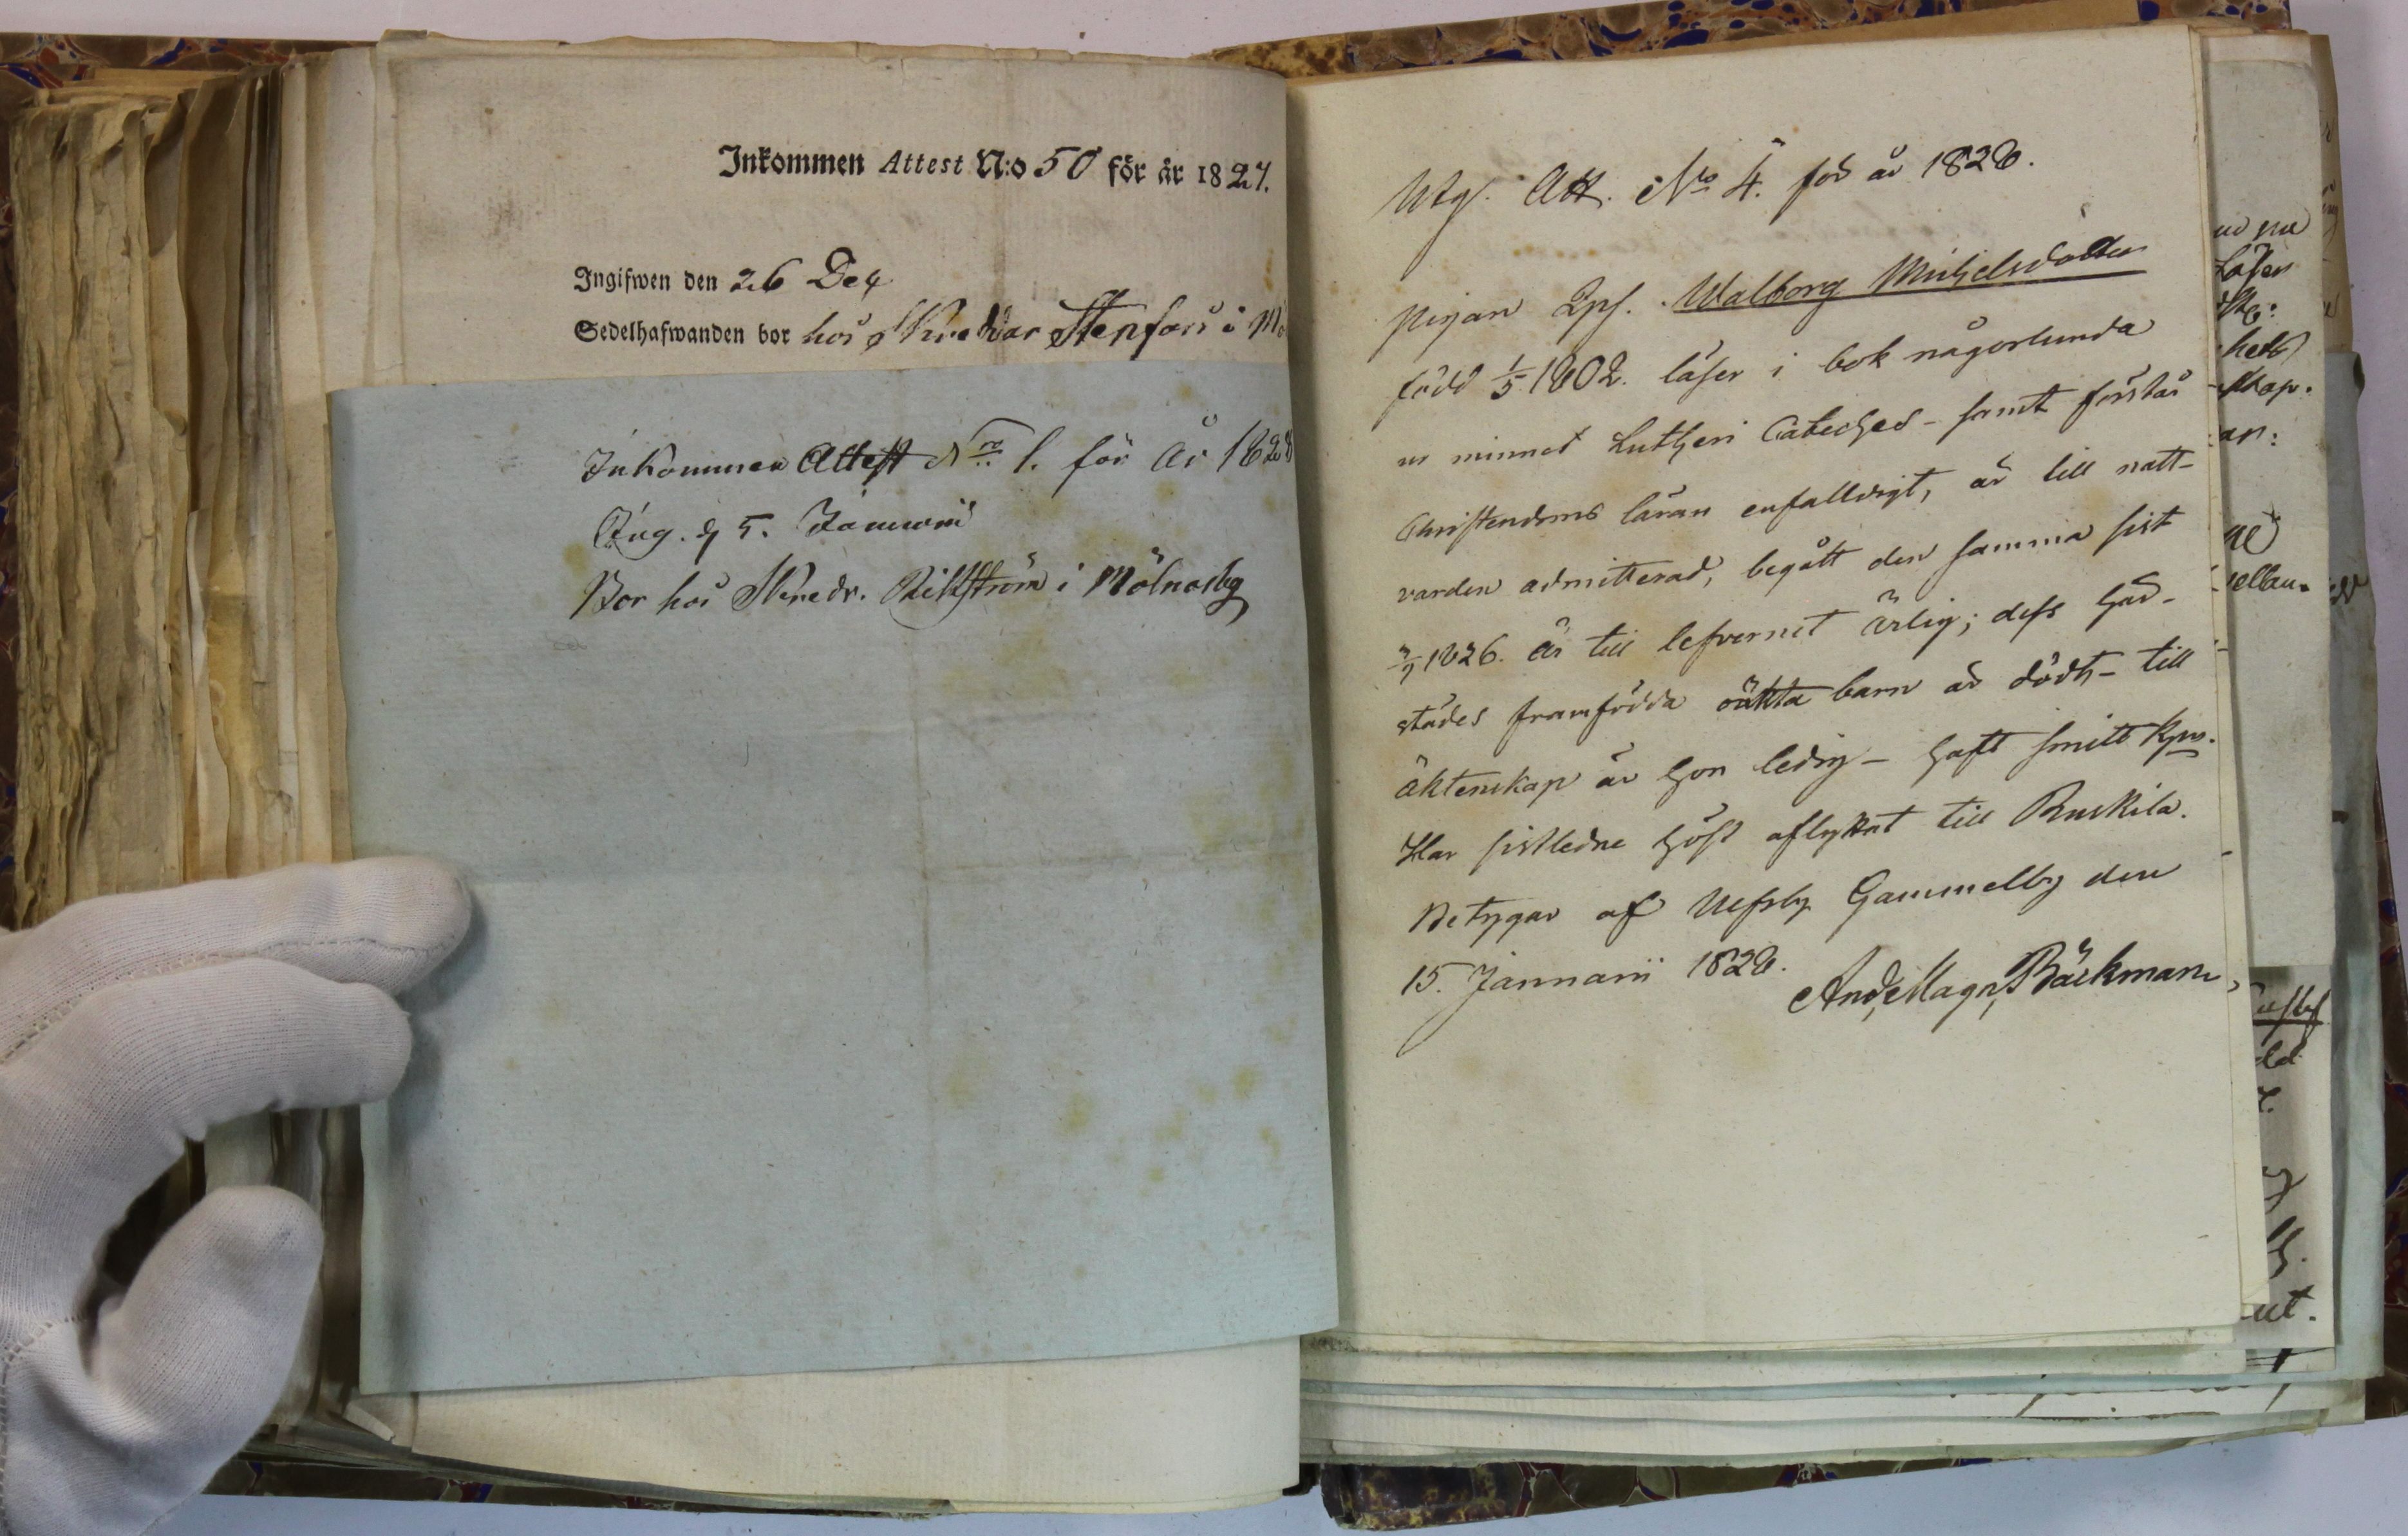 Inkommen Attest N:o 50 för år 1827.
Ingifwen den 26 Dec
Sedelhafwanden bor hos Skredar Stenfors i
Inkommen Attest N:ro 1. för år 1828
Ing. d 5. Januarii
Bor hos Skredr. Rikström i Mölnarby
Utg. Att. No 4. för år 1828.
Pigan Qps. Walborg Michelsdotter
född 1/5 1802. läser i bok någorlunda
ur minnet Lutheri Cateches - samt förstår
Christendoms läran enfalldigt, är till natt-
varden admitterad, begått den samma sist
1826. är till lefvernet ärlig; dess här-
städes framfödda oäkta barn är dödt - till
äktenskap är hon ledig - haft smitt kpr.
Har sistledne höst aflyttat till Ruskila.
Betygar af Nefsby Gammelby den
15. Januarii 1828.
And. Magn. Bäckman,